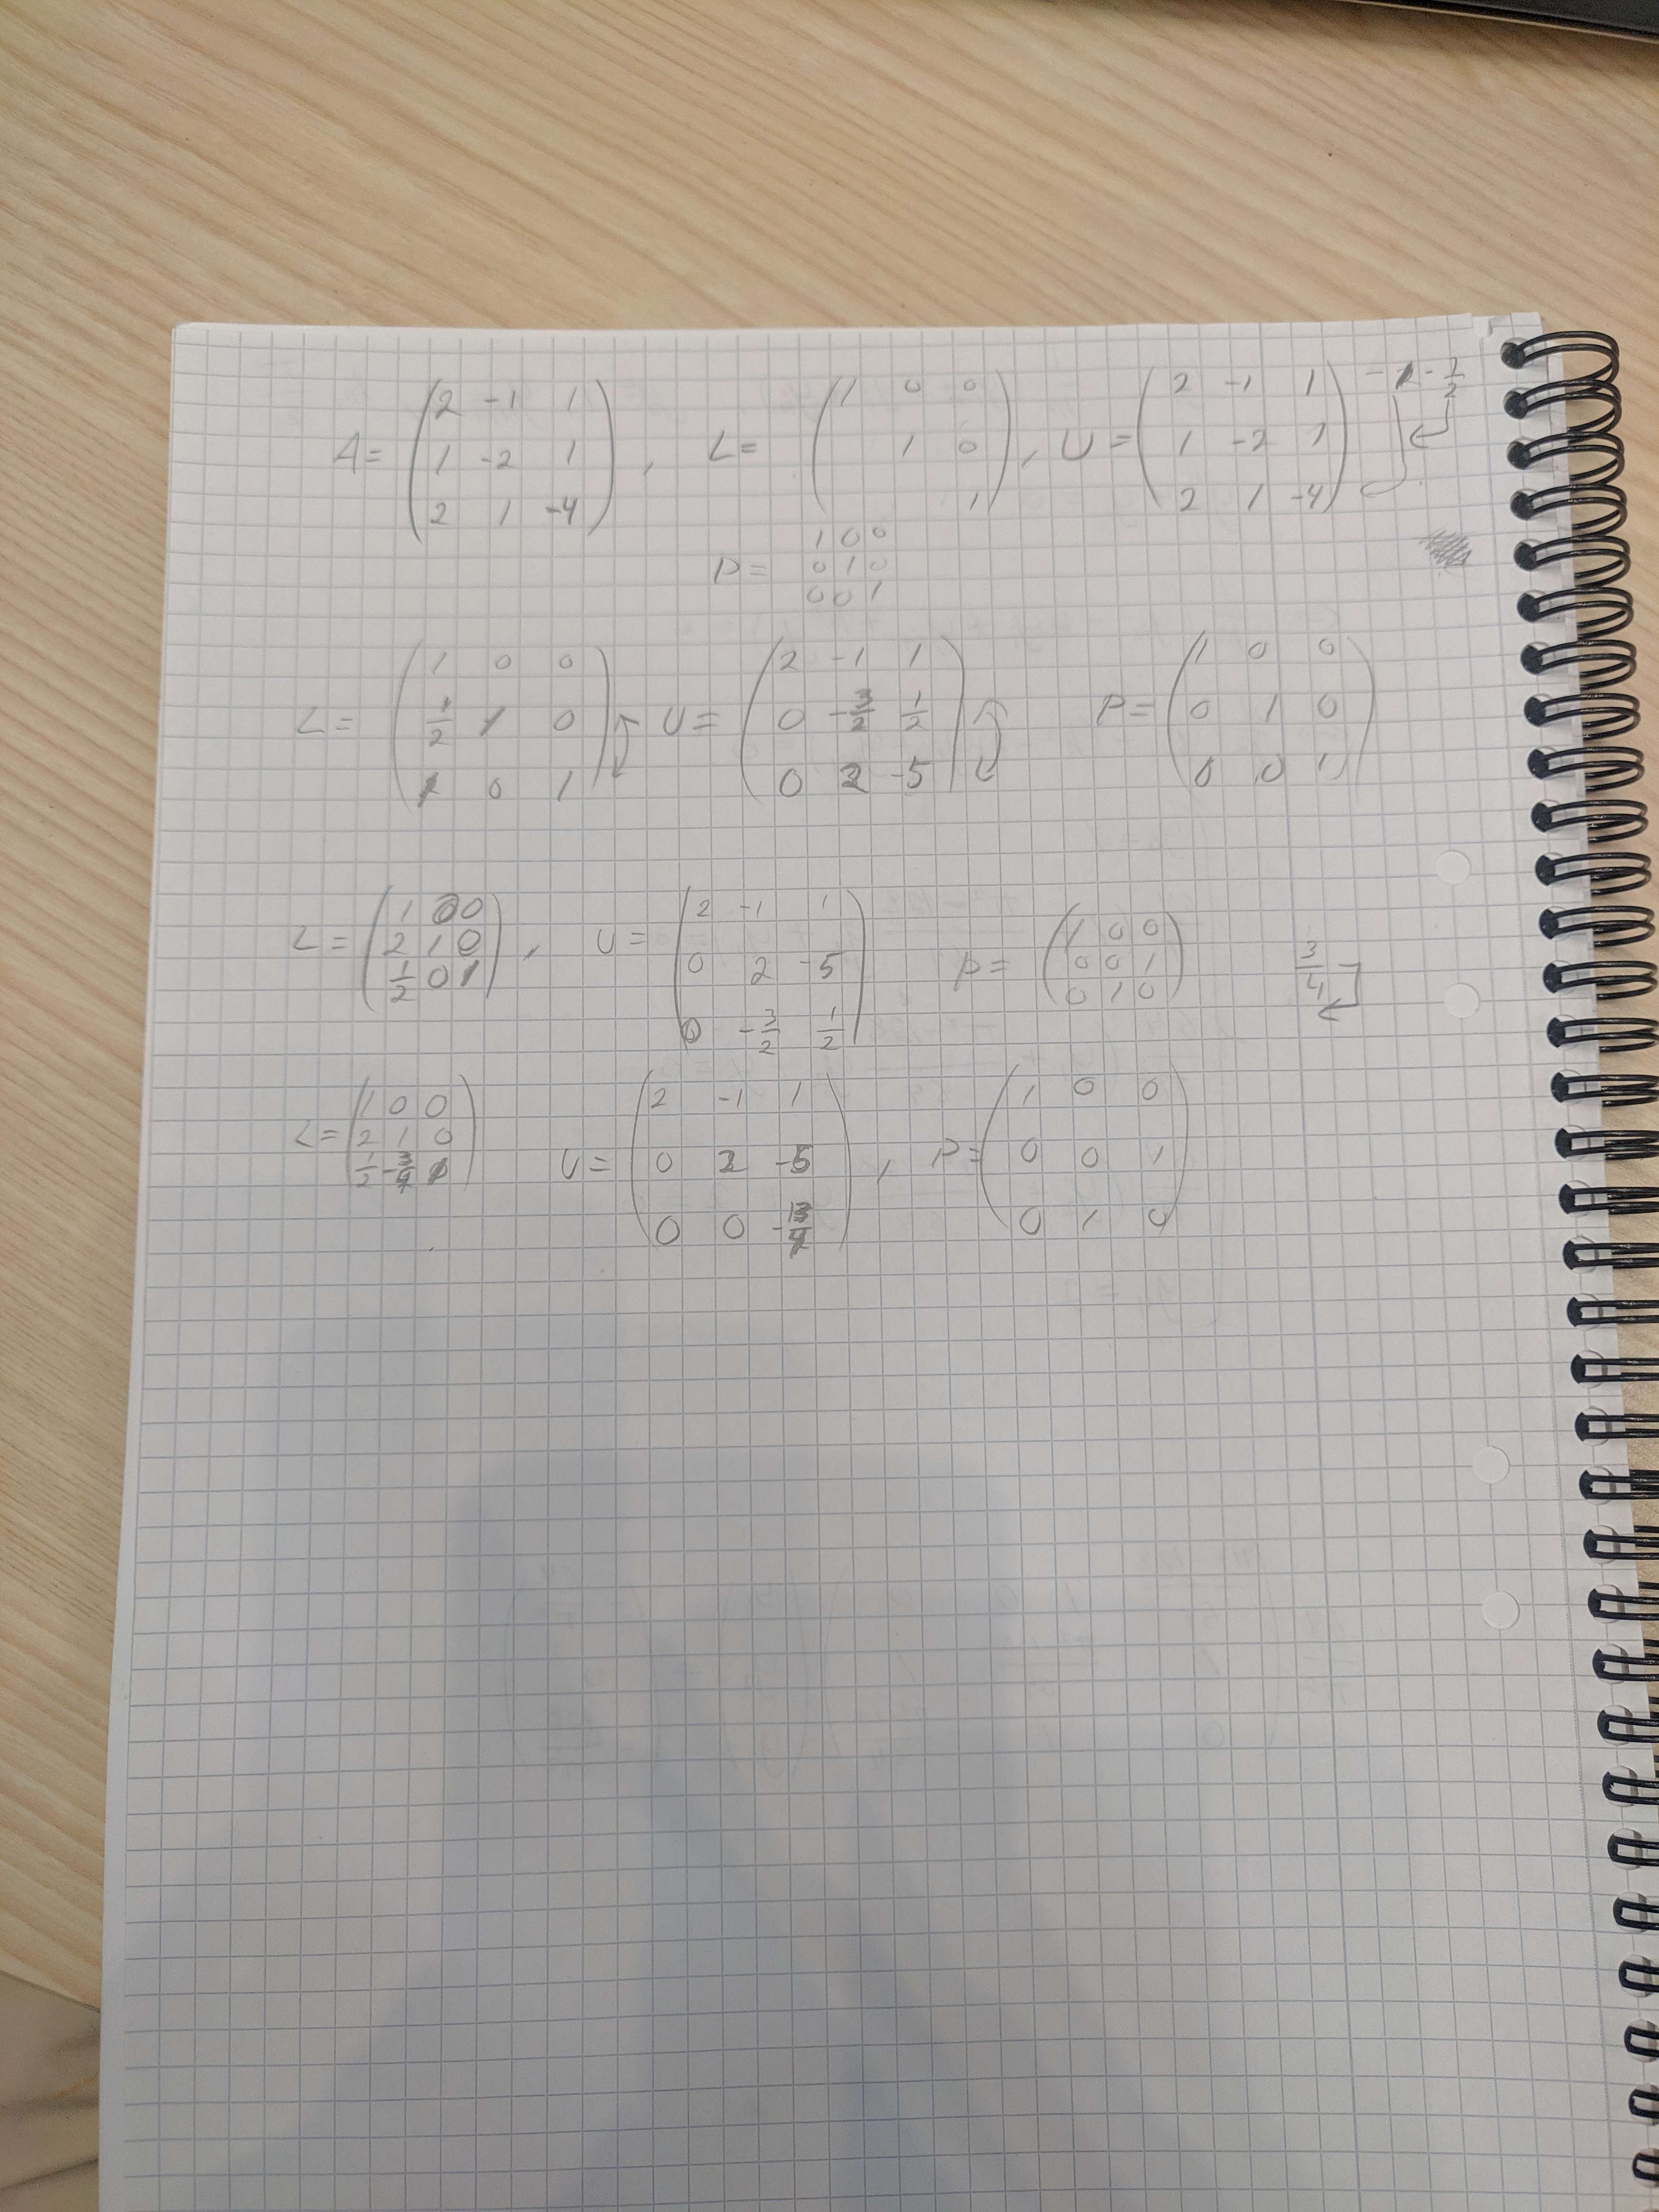 A = (2 -1 1; 1 -2 1; 2 1 -4), L = (1 0 0; 1 0; 1), U = (2 -1 1; 1 -2 1; 2 1 -4) -1 -1/2
P = 1 0 0; 0 1 0; 0 0 1
L = (1 0 0; 1/2 1 0; 1 0 1) U = (2 -1 1; 0 -3/2 1/2; 0 2 -5) P = (1 0 0; 0 1 0; 0 0 1)
L = (1 0 0; 2 1 0; 1/2 0 1), U = (2 -1 1; 0 2 -5; 0 -3/2 1/2) P = (1 0 0; 0 0 1; 0 1 0) 3/4
L = (1 0 0; 2 1 0; 1/2 -3/4 1) U = (2 -1 1; 0 2 -5; 0 0), P = (1 0 0; 0 0 1; 0 1 0)